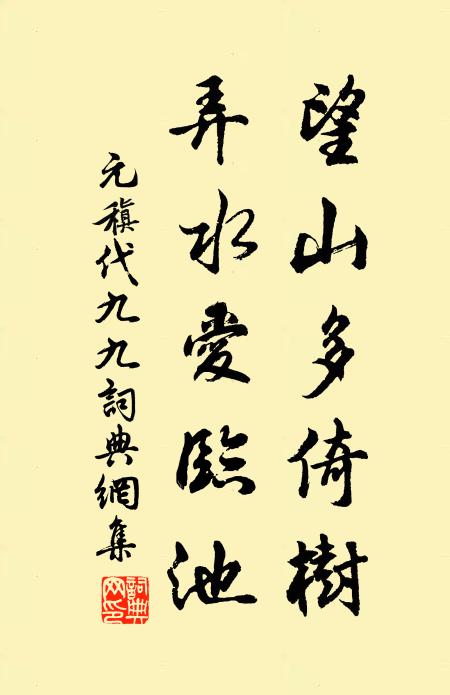 望山多倚樹
弄水愛臨池
元稹代九九詞典網集
詞典網印